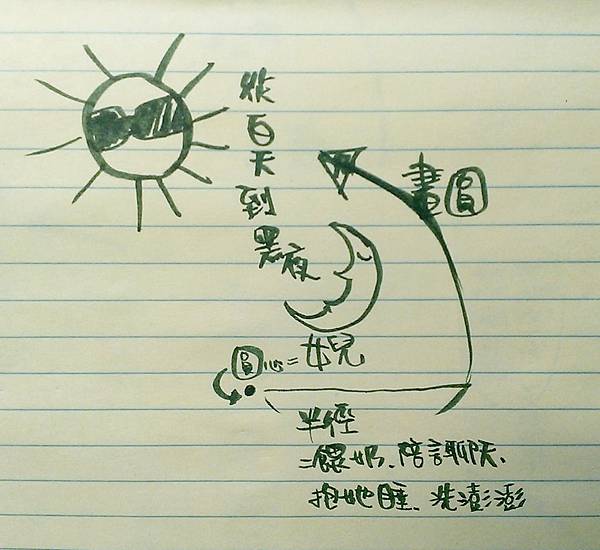 從白天到黑夜
畫圓
圓心=女兒
半徑
=餵奶、陪訂聊天、
抱她睡、洗澎澎